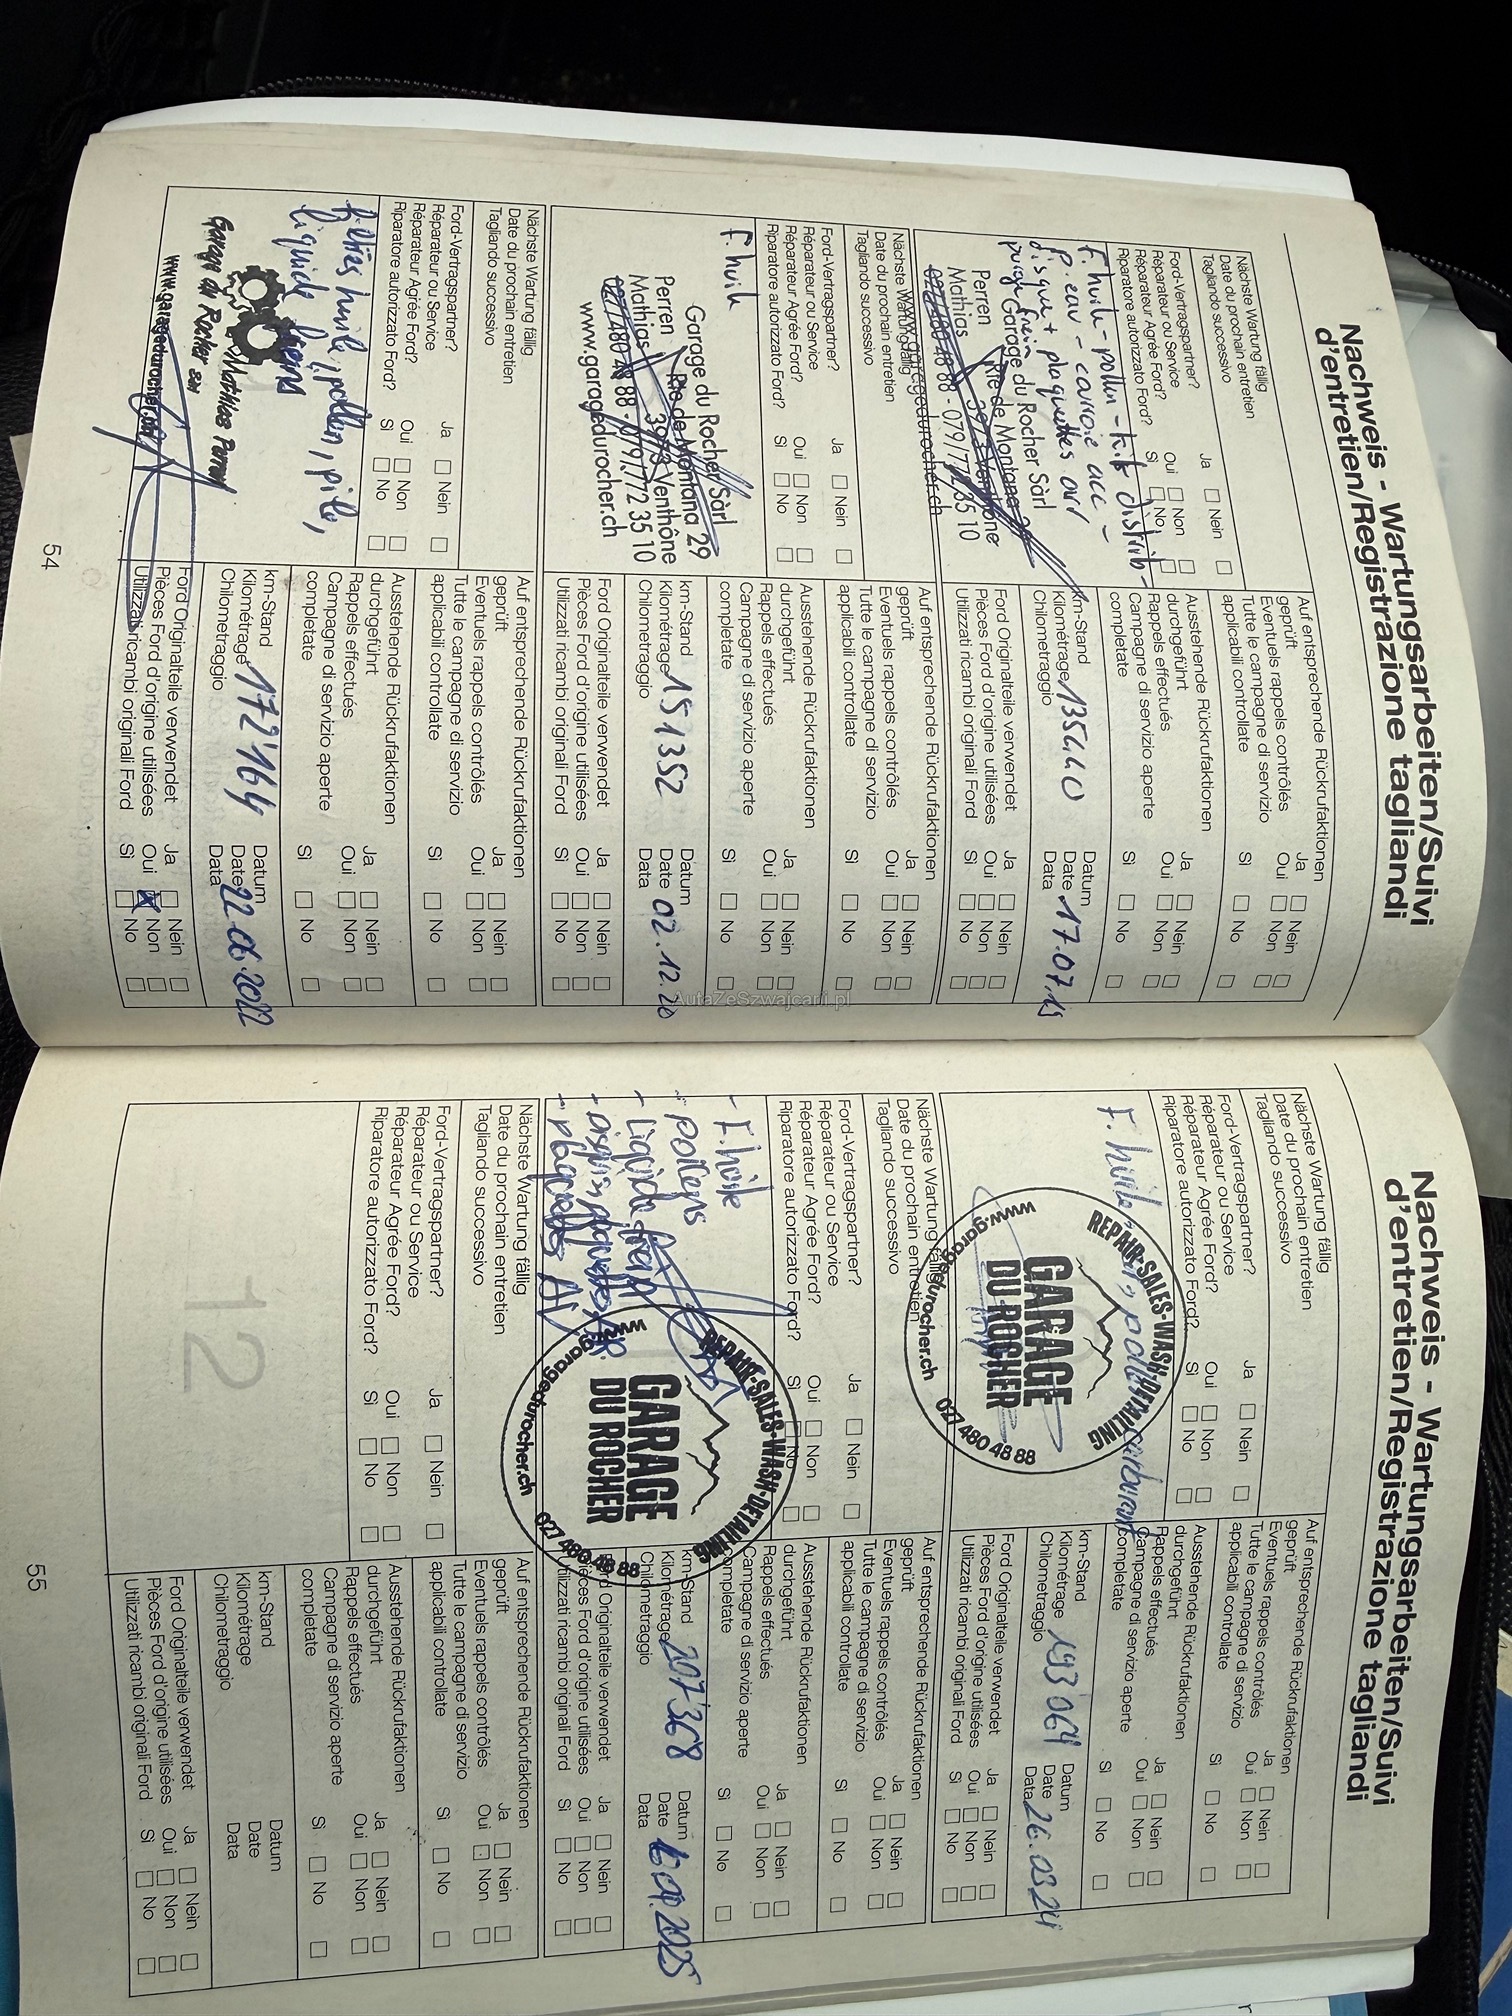 Nachweis - Wartungsarbeiten/Suivi
d'entretien/Registrazione tagliandi
Nächste Wartung fällig
Date du prochain entretien
Tagliando successivo
Ford-Vertragspartner?
Réparateur ou Service
Réparateur Agrée Ford?
Riparatore autorizzato Ford?
Ja Nein
Oui Non
Sì No
F. huile - pollen - kit distrib -
p. eau - courroie acc -
disque + plaquettes avr
purge frein
Garage du Rocher Sàrl
Perren Rte de Montana 29
Mathias 3973 Venthône
027/480 48 88 - 079/772 35 10
www.garagedurocher.ch
Auf entsprechende Rückrufaktionen
geprüft
Eventuels rappels contrôlés
Tutte le campagne di servizio
applicabili controllate
Ja Nein
Oui Non
Sì No
Ausstehende Rückrufaktionen
durchgeführt
Rappels effectués
Campagne di servizio aperte
completate
Ja Nein
Oui Non
Sì No
km-Stand
Kilométrage 135440
Chilometraggio
Datum
Date 17.07.19
Data
Ford Originalteile verwendet
Pièces Ford d'origine utilisées
Utilizzati ricambi originali Ford
Ja Nein
Oui Non
Sì No
Nächste Wartung fällig
Date du prochain entretien
Tagliando successivo
Ford-Vertragspartner?
Réparateur ou Service
Réparateur Agrée Ford?
Riparatore autorizzato Ford?
Ja Nein
Oui Non
Sì No
F. huile
Garage du Rocher Sàrl
Perren Rte de Montana 29
Mathias 3973 Venthône
027/480 48 88 - 079/772 35 10
www.garagedurocher.ch
Auf entsprechende Rückrufaktionen
geprüft
Eventuels rappels contrôlés
Tutte le campagne di servizio
applicabili controllate
Ja Nein
Oui Non
Sì No
Ausstehende Rückrufaktionen
durchgeführt
Rappels effectués
Campagne di servizio aperte
completate
Ja Nein
Oui Non
Sì No
km-Stand
Kilométrage 151352
Chilometraggio
Datum
Date 02.12.20
Data
Ford Originalteile verwendet
Pièces Ford d'origine utilisées
Utilizzati ricambi originali Ford
Ja Nein
Oui Non
Sì No
Nächste Wartung fällig
Date du prochain entretien
Tagliando successivo
Ford-Vertragspartner?
Réparateur ou Service
Réparateur Agrée Ford?
Riparatore autorizzato Ford?
Ja Nein
Oui Non
Sì No
filtres huile, pollen, pile,
liquide freins
Mathias Perren
Garage du Rocher Sàrl
www.garagedurocher.ch
Auf entsprechende Rückrufaktionen
geprüft
Eventuels rappels contrôlés
Tutte le campagne di servizio
applicabili controllate
Ja Nein
Oui Non
Sì No
Ausstehende Rückrufaktionen
durchgeführt
Rappels effectués
Campagne di servizio aperte
completate
Ja Nein
Oui Non
Sì No
km-Stand
Kilométrage 172'164
Chilometraggio
Datum
Date 22.06.2022
Data
Ford Originalteile verwendet
Pièces Ford d'origine utilisées
Utilizzati ricambi originali Ford
Ja Nein
Oui Non
Sì No
54
AutaZeSzwajcarii.pl
Nachweis - Wartungsarbeiten/Suivi
d'entretien/Registrazione tagliandi
Nächste Wartung fällig
Date du prochain entretien
Tagliando successivo
Ford-Vertragspartner?
Réparateur ou Service
Réparateur Agrée Ford?
Riparatore autorizzato Ford?
Ja Nein
Oui Non
Sì No
F. huile, pollen, carburant
REPAIR-SALES-WASH-DETAILING
GARAGE
DU ROCHER
www.garagedurocher.ch 027 480 48 88
Auf entsprechende Rückrufaktionen
geprüft
Eventuels rappels contrôlés
Tutte le campagne di servizio
applicabili controllate
Ja Nein
Oui Non
Sì No
Ausstehende Rückrufaktionen
durchgeführt
Rappels effectués
Campagne di servizio aperte
completate
Ja Nein
Oui Non
Sì No
km-Stand
Kilométrage 193'064
Chilometraggio
Datum
Date 26.03.24
Data
Ford Originalteile verwendet
Pièces Ford d'origine utilisées
Utilizzati ricambi originali Ford
Ja Nein
Oui Non
Sì No
Nächste Wartung fällig
Date du prochain entretien
Tagliando successivo
Ford-Vertragspartner?
Réparateur ou Service
Réparateur Agrée Ford?
Riparatore autorizzato Ford?
Ja Nein
Oui Non
Sì No
- F. huile
- pollens
- Liquide frein
- plaquettes AV
REPAIR-SALES-WASH-DETAILING
GARAGE
DU ROCHER
www.garagedurocher.ch 027 480 48 88
Auf entsprechende Rückrufaktionen
geprüft
Eventuels rappels contrôlés
Tutte le campagne di servizio
applicabili controllate
Ja Nein
Oui Non
Sì No
Ausstehende Rückrufaktionen
durchgeführt
Rappels effectués
Campagne di servizio aperte
completate
Ja Nein
Oui Non
Sì No
km-Stand
Kilométrage 207'368
Chilometraggio
Datum
Date
Data
Ford Originalteile verwendet
Pièces Ford d'origine utilisées
Utilizzati ricambi originali Ford
Ja Nein
Oui Non
Sì No
Nächste Wartung fällig
Date du prochain entretien
Tagliando successivo
Ford-Vertragspartner?
Réparateur ou Service
Réparateur Agrée Ford?
Riparatore autorizzato Ford?
Ja Nein
Oui Non
Sì No
12
Auf entsprechende Rückrufaktionen
geprüft
Eventuels rappels contrôlés
Tutte le campagne di servizio
applicabili controllate
Ja Nein
Oui Non
Sì No
Ausstehende Rückrufaktionen
durchgeführt
Rappels effectués
Campagne di servizio aperte
completate
Ja Nein
Oui Non
Sì No
km-Stand
Kilométrage
Chilometraggio
Datum
Date
Data
Ford Originalteile verwendet
Pièces Ford d'origine utilisées
Utilizzati ricambi originali Ford
Ja Nein
Oui Non
Sì No
55